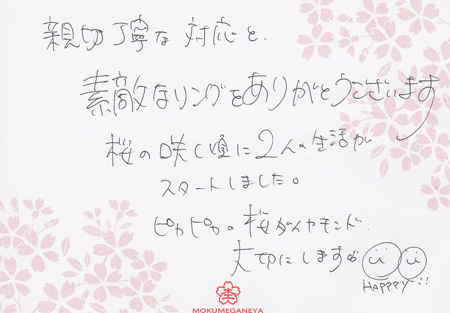 親切丁寧な対応と、
素敵なリングをありがとうございます
桜の咲く頃に2人の生活が
スタートしました。
ピカピカの桜ダイヤモンド、
大切にします
HAPPY!!
MOKUMEGANEYA